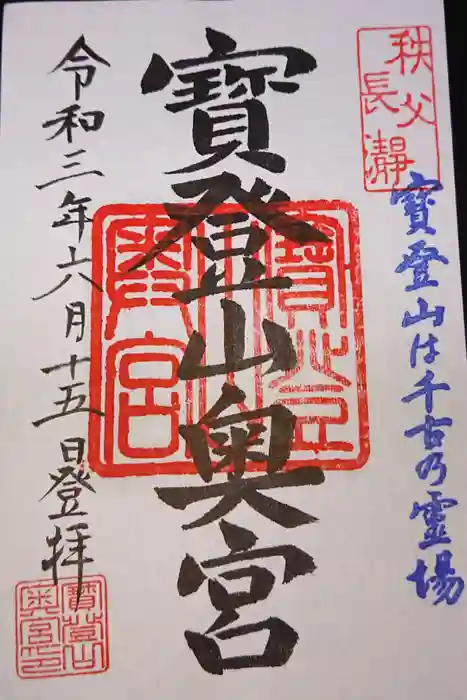 秩父
長瀞
寶登山は千古乃霊場
寶登山奥宮
寶登山
奥宮
令和三年六月十五日登拝
寶登山
奥宮印